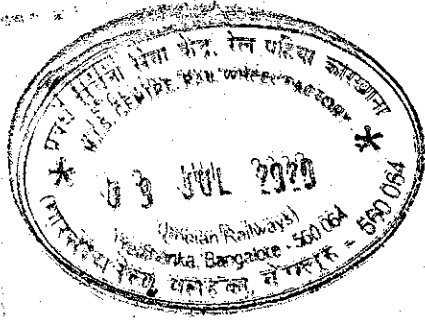 प्रबंध सूचना सेवा केंद्र, रेल पहिया कारखाना
M.I.S. CENTRE, RAIL WHEEL FACTORY
JUL 2020
(Indian Railways)
Yelahanka, Bangalore - 560 064
(भारतीय रेल) यलहंका, बेंगलूर - 560 064